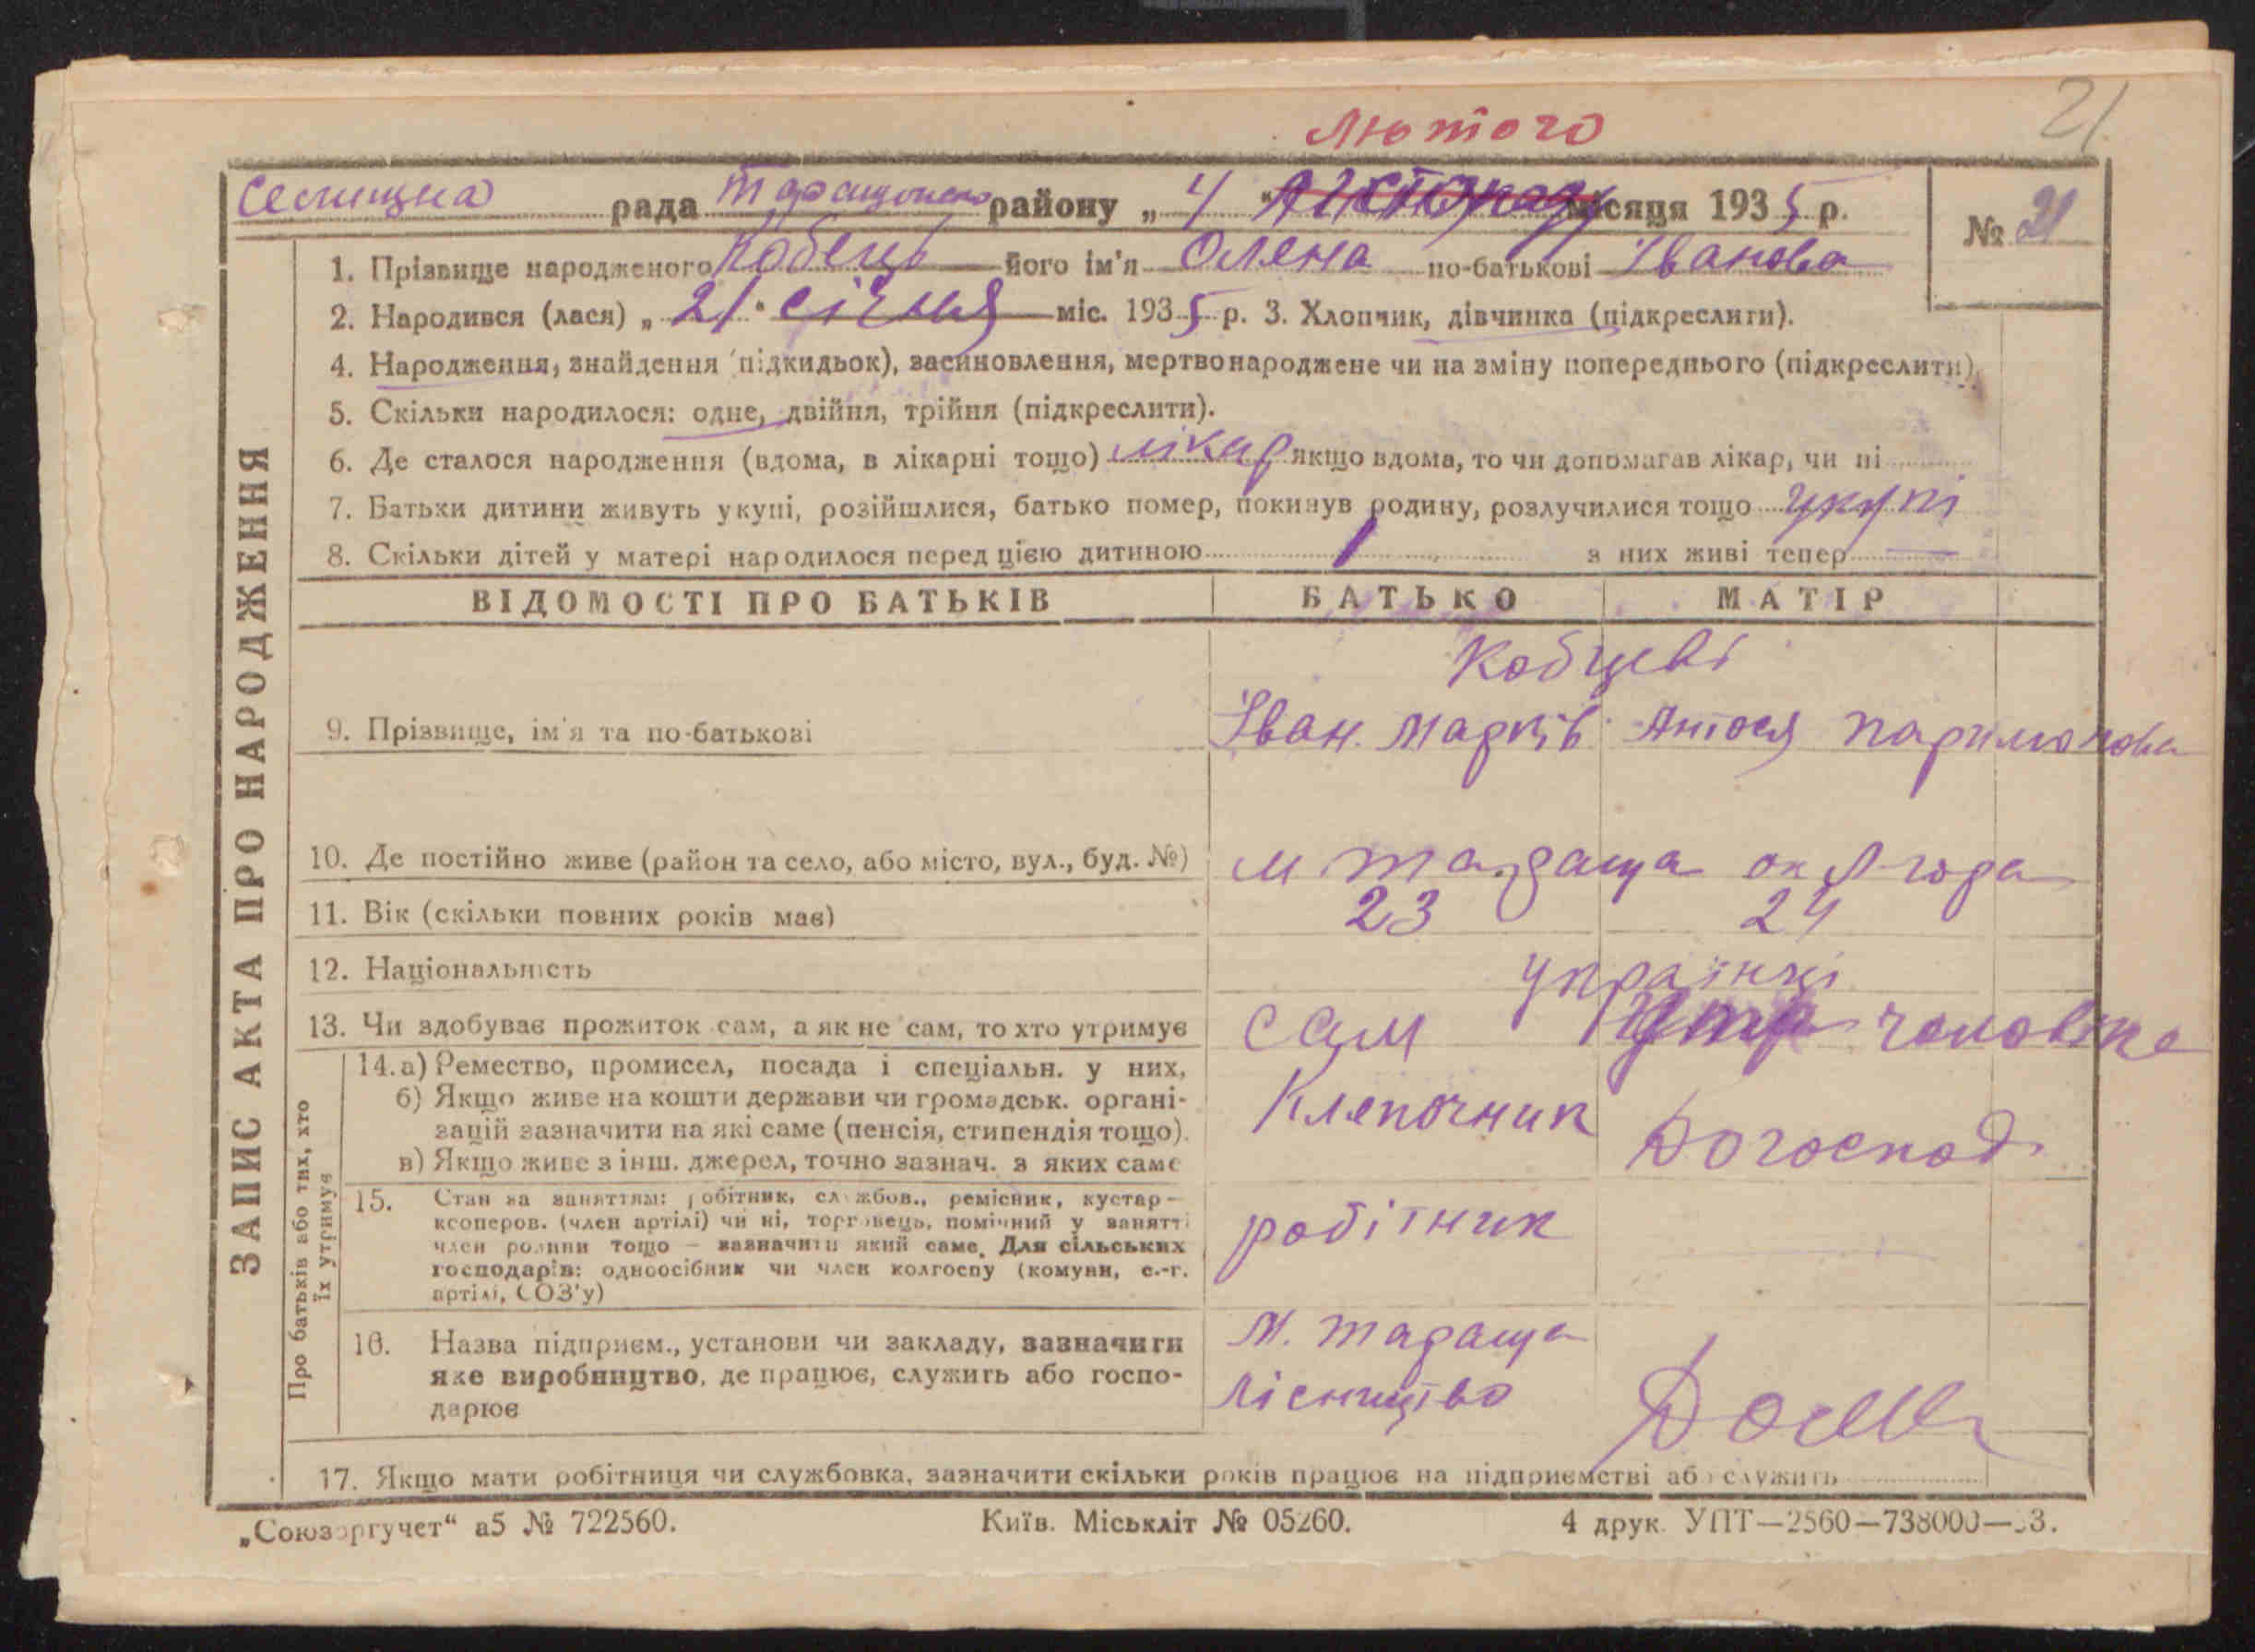 21
Лютого
Селищна рада Таращансько району „ 4 " Листопаду місяця 1935 р.
№ 21
1. Прізвище народженого Кобець його ім'я Олена по-батькові Іванова
2. Народився (лася) „ 21 " січня міс. 1935 р. 3. Хлопчик, дівчинка (підкреслити).
4. Народження, знайдення (підкидьок), засиновлення, мертвонароджене чи на зміну попереднього (підкреслити)
5. Скільки народилося: одне, двійня, трійня (підкреслити).
6. Де сталося народження (вдома, в лікарні тощо) лікар якщо вдома, то чи допомагав лікар, чи ні
7. Батьки дитини живуть укупі, розійшлися, батько помер, покинув родину, розлучилися тощо укупі
8. Скільки дітей у матері народилося перед цією дитиною 1 з них живі тепер —
ЗАПИС АКТА ПРО НАРОДЖЕННЯ
ВІДОМОСТІ ПРО БАТЬКІВ БАТЬКО МАТІР
Кобцеві
9. Прізвище, ім'я та по-батькові Іван Марків Антося Паримонова
10. Де постійно живе (район та село, або місто, вул., буд. №) м Тараща
11. Вік (скільки повних років має) 23 24
12. Національність Українці
13. Чи здобуває прожиток сам, а як не сам, то хто утримує сам чоловіка
Про батьків або тих, хто їх утримує
14. а) Ремество, промисел, посада і спеціальн. у них,
б) Якщо живе на кошти держави чи громадськ. органі-
зацій зазначити на які саме (пенсія, стипендія тощо).
в) Якщо живе з інш. джерел, точно зазнач. з яких саме
Клепочник Догоспод
15. Стан за заняттям: робітник, службов., ремісник, кустар—
кооперов. (член артілі) чи ні, торговець, помічний у занятті
член родини тощо — зазначити який саме. Для сільських
господарів: одноосібник чи член колгоспу (комуни, с.-г.
артілі, СОЗ'у)
робітник
16. Назва підприєм., установи чи закладу, зазначити
яке виробництво, де працює, служить або госпо-
дарює
м. Тараща
лісництво
17. Якщо мати робітниця чи службовка, зазначити скільки років працює на підприємстві або служить
„Союзоргучет“ а5 № 722560. Київ. Міськліт № 05260. 4 друк. УПТ—2560—738000—33.